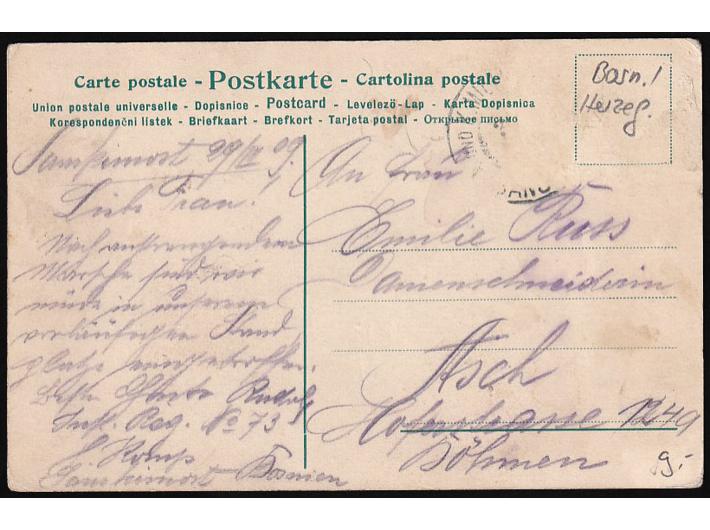 Carte postale - Postkarte - Cartolina postale
Union postale universelle - Dopisnice - Postcard - Levelező-Lap - Karta Dopisnica
Korespondenční listek - Briefkaart - Brefkort - Tarjeta postal - Открытое письмо
Bosn./
Herzeg.
29/ 09.
Liebe Frau!
Nach anstrengendem
Marsche sind wir
müde in unserem
vorläufigen Stand
platze eingetroffen.
Rudolf
Inft. Reg. No 73
Bosnien
An Frau
Emilie Russ
Damenschneiderin
Asch
Böhmen
9.-